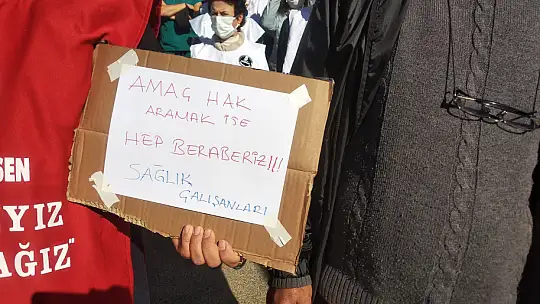 AMAÇ HAK
ARAMAK İSE
HEP BERABERİZ!!!
SAĞLIK
ÇALIŞANLARI
SEN
YIZ
AĞIZ"